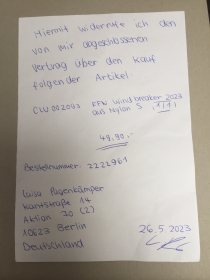 Hiermit widerrufe ich den
von mir abgeschlossenen
Vertrag über den Kauf
folgender Artikel
CLW002093 EFW Windbreaker 2023
aus Nylon S (1/1)
49,90,-
Bestellnummer: 2222961
Luisa
Kantstraße 14
30 (2)
10623 Berlin
Deutschland
26.5.2023